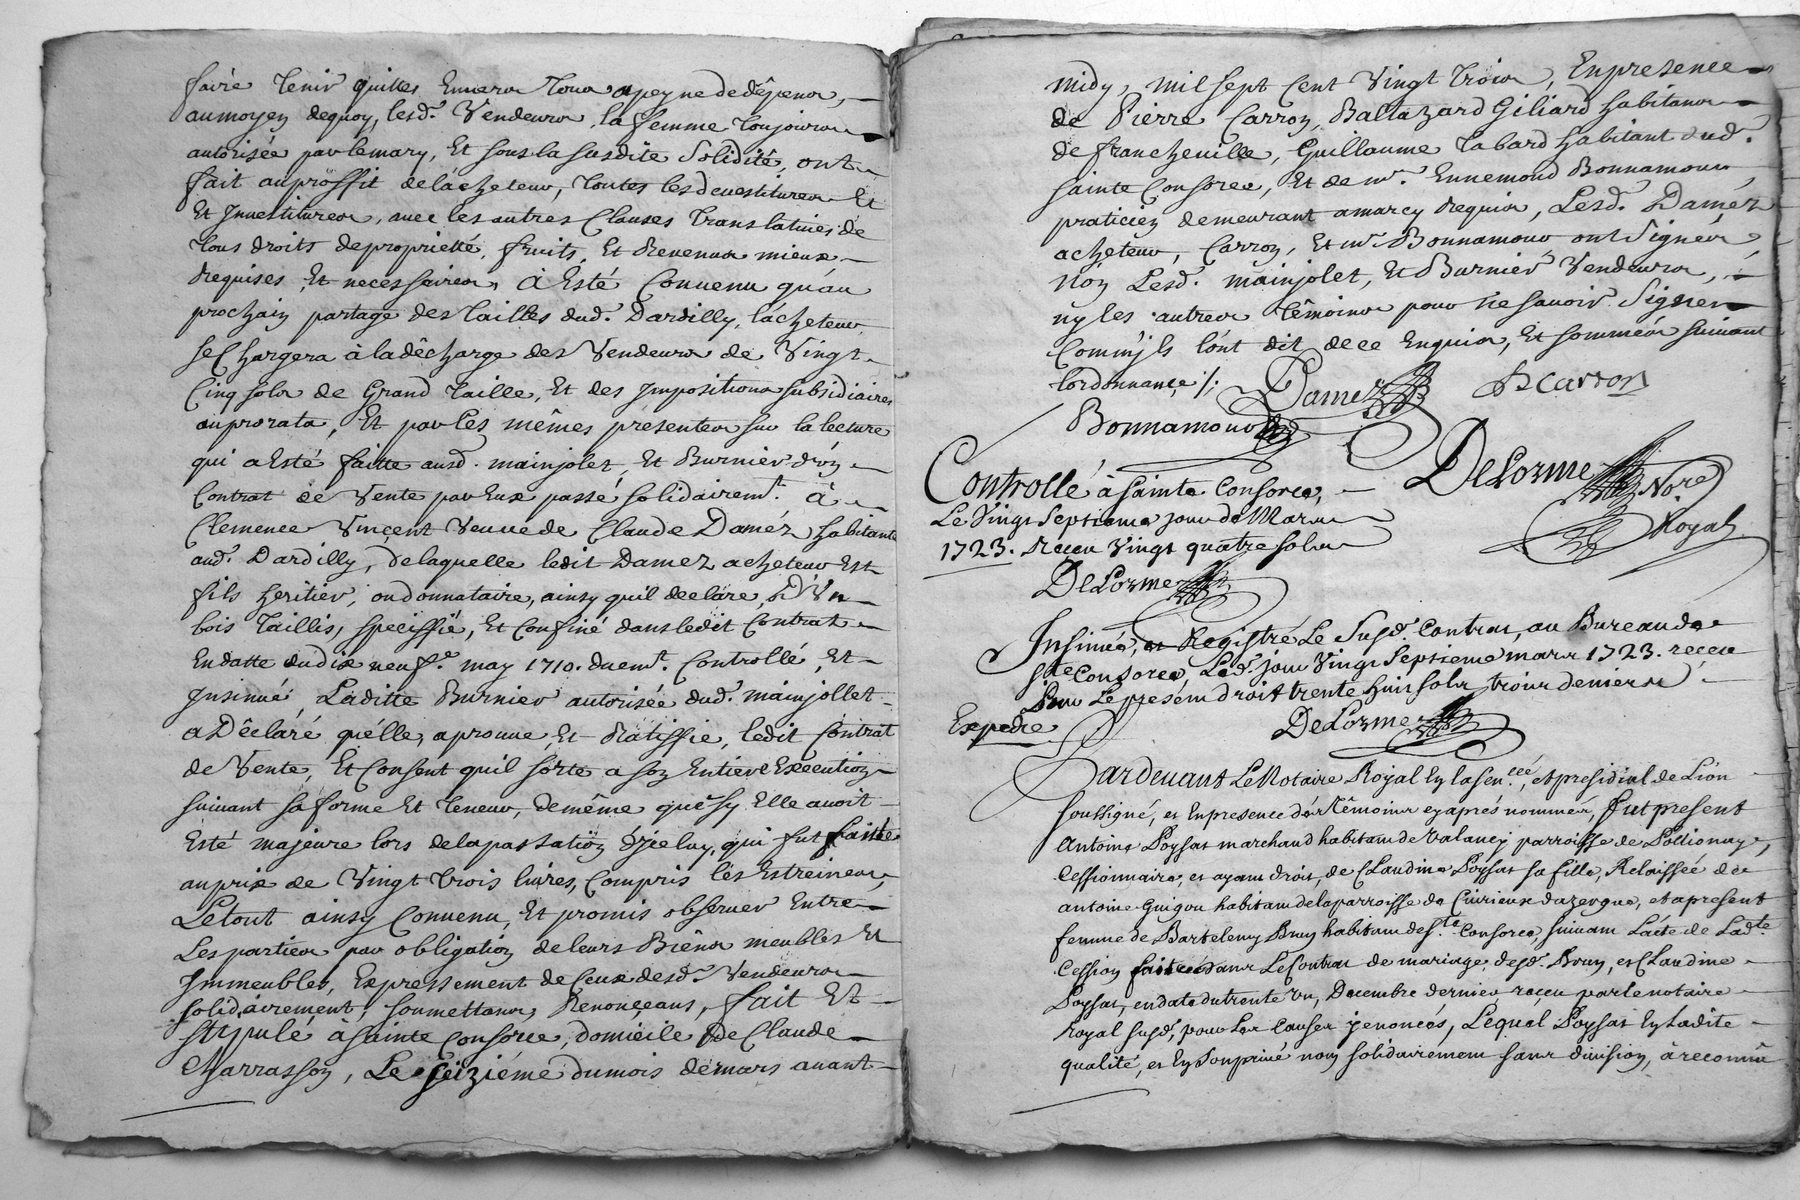 faire tenir quittes Envers tous apeyne dedépens,
aumoyen dequoy, lesd. Vendeurs, la femme toujours
autorisée par lemary, Et sous la susdite Solidité, ont
fait au proffit delácheteur, toutes les devestitures Et
Et Jnvestitures, avec les autres Clauses translatives de
tous droits depropriétté, fruits, Et Revenus mieux
Requises, Et necessaires, à Esté Convenu qu'au
prochain partage des tailles dud. Dardilly, l'ácheteur
se Chargera à la décharge des Vendeurs de Vingt
Cinq sols de Grand taille, Et des Jmpositions subsidiaires
auprorata, Et par les mêmes présentes sur la lecture
qui a Esté faitte ausd. mainjolet, Et Burnier d'un
Contrat de Vente par Eux passé solidairemt. à
Clemence Vinçent Veuve de Claude Daméz habitante
aud. Dardilly, de laquelle ledit Damez acheteur Est
fils heritier, ou donnataire, ainsy quil declare, D'Un
bois taillis, speciffié, Et Confiné dans ledit Contrat
En datte dudix neufe. may 1710. duemt. Controllé, Et
Jnsinué, Laditte Burnier autorisée dud. mainjollet
a Déclaré qu'élle, aprouve, Et Ratiffie, ledit Contrat
de Vente, Et Consent quil sorte a son Entiere Execution
suivant sa forme Et teneur, demême que sy Elle avoit
Esté majeure lors de la passation d'jceluy, qui fut faitte
auprix de Vingt trois livres, Compris les Estreines,
Letout ainsy Convenu, Et promis observer Entre
Les parties par obligation de leurs Biéns meubles Et
Jmmeubles, Expressement de Ceux desd. Vendeurs
solidairement, soumettans, Renonçeans, fait Et
stipulé à sainte Consorce, domicile De Claude
Marrasson, Le seiziéme dumois démars avant
midy, mil sept Cent Vingt trois, En presence
de Pierre Carron, Baltazard Giliard habitans
de francheville, Guillaume tabard habitant dud.
sainte Consorce, Et de mr. Ennemond Bonnamour,
praticien demeurant a marcy, Lesd. Daméz
acheteur, Carron, Et mr. Bonnamour ont Signéz
Nón Lesd. mainjolet, Et Burnier Vendeurs,
ny les autres témoins pour ne savoir Signer
Comm'jls l'ónt dit dece Enquis, Et sommés suivant
l'ordonnançe ./.
Damez P Carron
Bonnamour
DeLorme Nore
Royal
Controllé à sainte Consorce,
Le Vingt Septieme jour de Mars
1723. Receu Vingt quatre sols
DeLorme
Jnsinué, et Registré Le Susd. Contrat, au Bureau de
Ste Consorce, Led. jour Vingt Septieme mars 1723. receu
pour Le present droit trente huit sols trois deniers
DeLorme
Expedié
Pardevant Le Notaire Royal En la sen.cée, et presidial de Lion
soussigné, et En presence des témoins cy aprés nommés, fut present
Antoine Poysat marchand habitant de Valancy parroisse de Pollionnay,
Cessionnaire, et ayant droit, de Claudine Poysat sa fille, Relaissée de
antoine Guigou habitant de la parroisse de Civrieux dazergue, et apresent
femme de Bartelemy Brun habitant de Ste. Consorce, suivant L'acte de Ladte
Cession faite dans Le Contrat de mariage desd. Brun, et Claudine
Poysat, en date du trente Un, Decembre dernier reçeu par le notaire
Royal susd., pour Les Causes y enoncés, Lequel Poysat En Ladite
qualité, et En son privé nom solidairement sans division, à reconnu